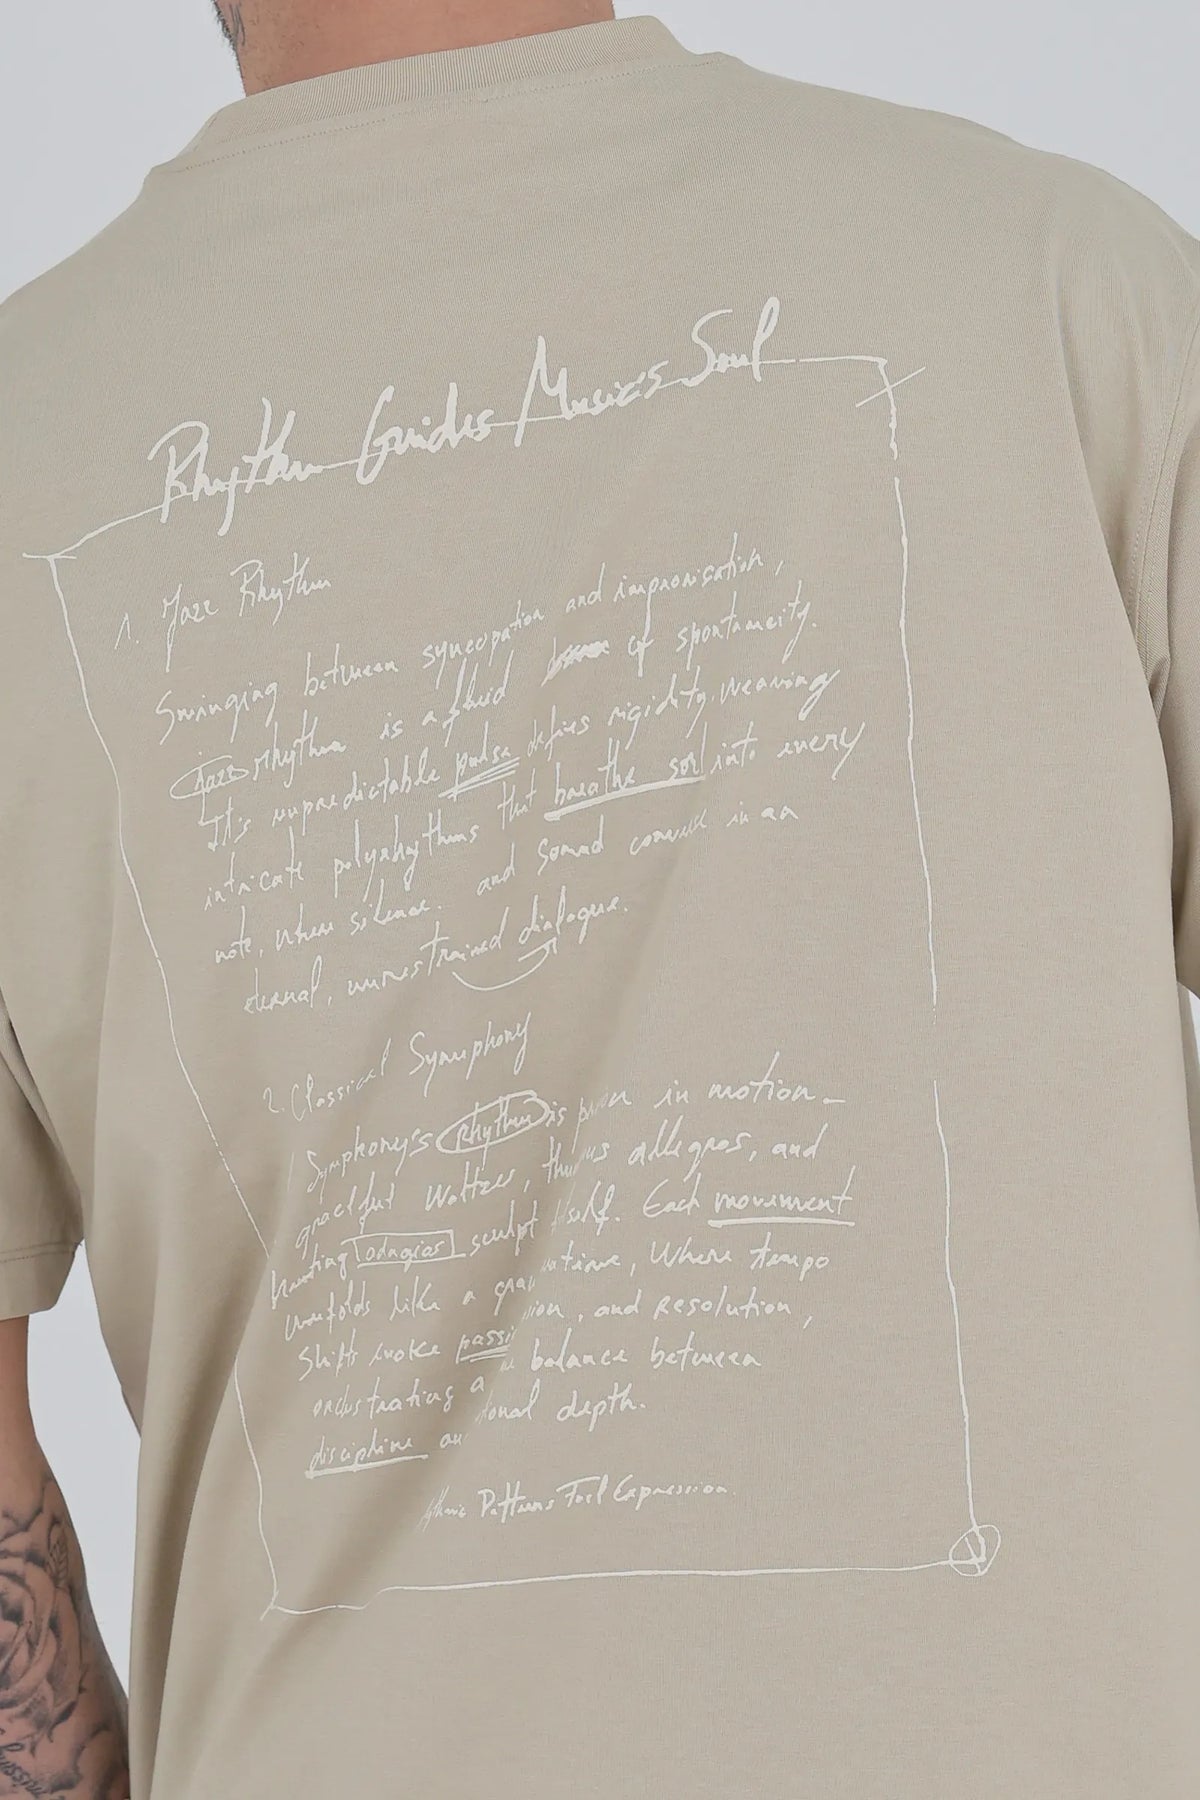 Rhythm Guides Musics Soul
1. Jazz Rhythm
Swinging between syncopation and improvisation,
jazz rhythm is a fluid of spontaneity.
It's unpredictable pulse defies rigidity, weaving
intricate polyrhythms that breathe soul into every
note, where silence. and sound converse in an
eternal, unrestrained dialogue.
2. Classical Symphony
Symphony's rhythm is in motion_
graceful waltzes, allegros, and
haunting adagios sculpt itself. Each movement
unfolds like a Where tempo
shifts evoke and resolution,
orchestrating a balance between
discipline depth.
Patterns Fuel Expression.